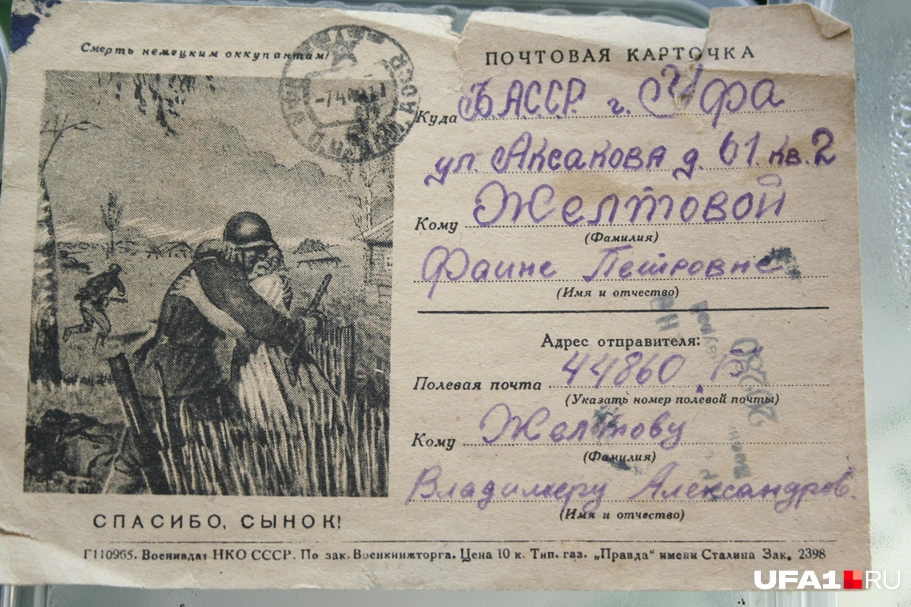 Смерть немецким оккупантам!
ПОЧТОВАЯ КАРТОЧКА
Куда БАССР г. Уфа
ул. Аксакова д. 61. кв. 2
Кому Желтовой
(Фамилия)
Фаине Петровне
(Имя и отчество)
Адрес отправителя:
Полевая почта 44860
(Указать номер полевой почты)
Кому Желтову
(Фамилия)
Владимеру Александров.
(Имя и отчество)
СПАСИБО, СЫНОК!
Г110965. Воениздат НКО СССР. По зак. Военкнижторга. Цена 10 к. Тип. газ. „Правда“ имени Сталина Зак. 2398
UFA1.RU